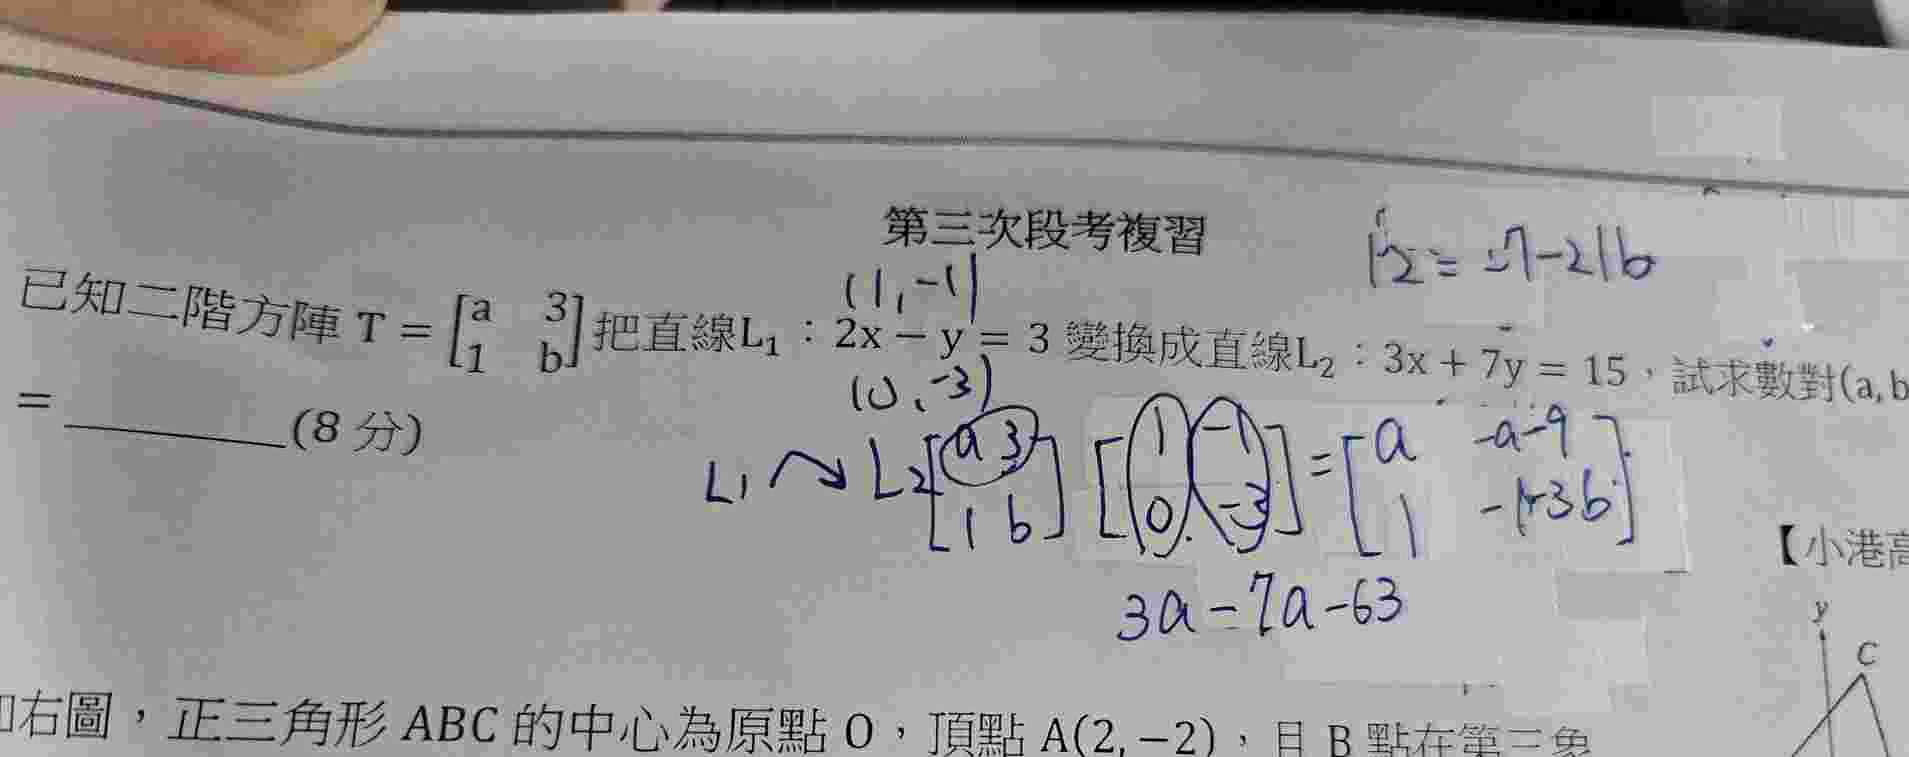 第三次段考複習
12 = -7-21b
(1,-1)
已知二階方陣 T = [a 3 1 b] 把直線L₁：2x − y = 3 變換成直線L₂：3x + 7y = 15，試求數對(a,b
(0,-3)
= ________(8 分)
L1 ↷ L2 [a 3 1 b] [1 -1 0 -3] = [a -a-9 1 -1-3b]
3a-7a-63
【小港高
y
C
右圖，正三角形 ABC 的中心為原點 O，頂點 A(2,−2)，且 B 點在第三象